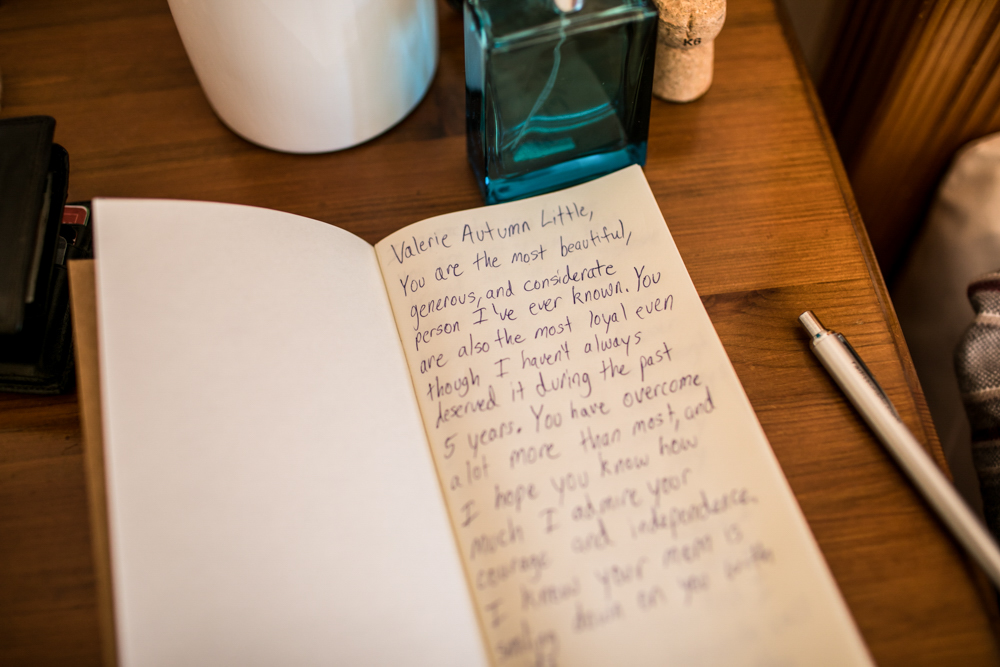 K6
Valerie Autumn Little,
You are the most beautiful,
generous, and considerate
person I've ever known. You
are also the most loyal even
though I haven't always
deserved it during the past
5 years. You have overcome
a lot more than most, and
I hope you know how
much I admire your
courage and independence.
I know your mom is
smiling down on you with